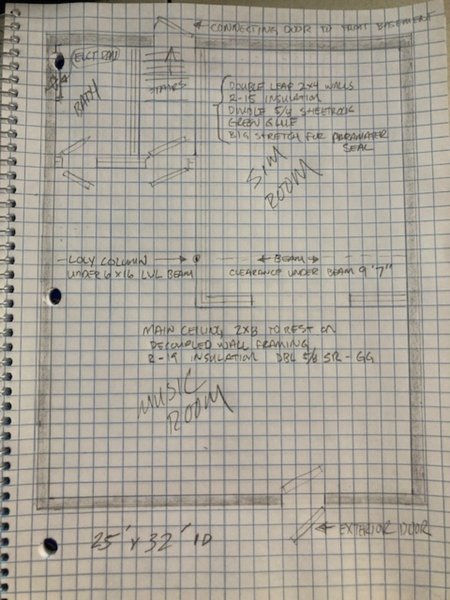 CONNECTING DOOR TO MAIN BASEMENT
ELCT PANEL
BATH
STAIRS
DOUBLE LEAF 2x4 WALLS
R-15 INSULATION
DOUBLE 5/8 SHEETROCK
GREEN GLUE
BIG STRETCH FOR PERIMETER
SEAL
SIM
ROOM
LOLY COLUMN
UNDER 6x16 LVL BEAM
BEAM
CLEARANCE UNDER BEAM 9'7"
MAIN CEILING 2x8 TO REST ON
DECOUPLED WALL FRAMING,
R-19 INSULATION DBL 5/8 SR-GG
MUSIC
ROOM
25' x 32' ID
EXTERIOR DOOR